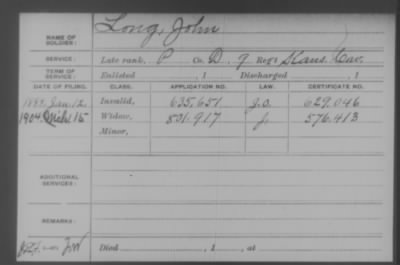 NAME OF SOLDIER: Long, John
SERVICE: Late rank, P Co. D, 9 Reg't Kans. Cav.
TERM OF SERVICE: Enlisted , 1 Discharged , 1
DATE OF FILING. CLASS. APPLICATION NO. LAW. CERTIFICATE NO.
Jan. 12. Invalid, 635,651 g.o. 629,046
1904 Mch 15 Widow, 801,917 g. 576,413
Minor,
ADDITIONAL SERVICES:
REMARKS:
Died , 1 , at